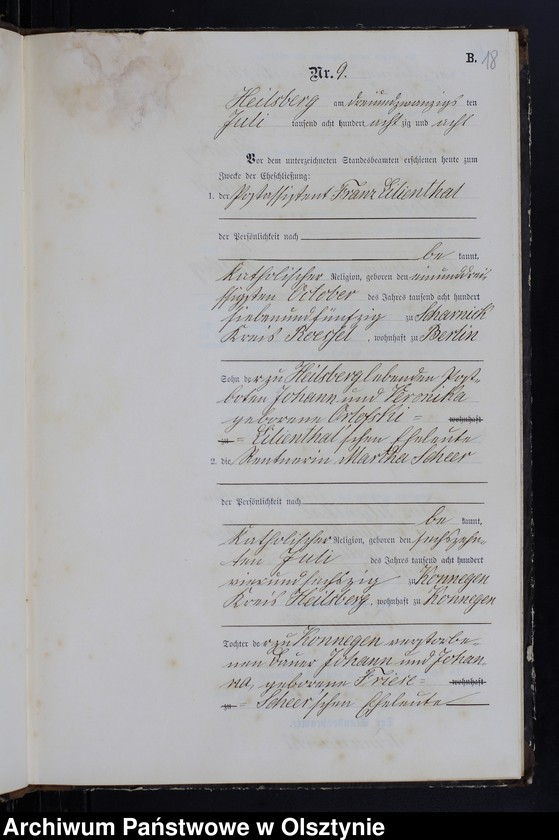 B. 18
Nr. 9.
Heilsberg am dreiundzwanzigs ten
Juli tausend acht hundert acht zig und acht
Vor dem unterzeichneten Standesbeamten erschienen heute zum
Zwecke der Eheschließung:
1. der Postassistent Franz Lilienthal
der Persönlichkeit nach
be kannt,
Katholischer Religion, geboren den einunddrei-
ssigsten October des Jahres tausend acht hundert
siebenundfünfzig zu Scharnick
Kreis Roessel, wohnhaft zu Berlin
Sohn der zu Heilsberg lebenden Post-
boten Johann und Veronika
geborene Orlofski = wohnhaft
zu = Lilienthal'schen Eheleute
2. die Rentnerin Martha Scheer
der Persönlichkeit nach
be kannt,
Katholischer Religion, geboren den sechszehn-
ten Juli des Jahres tausend acht hundert
vierundsechszig zu Konnegen
Kreis Heilsberg, wohnhaft zu Konnegen
Tochter der zu Konnegen verstorbe-
nen Bauer Johann und Johan
na, geborene Friese = wohnhaft
zu = Scheer'schen Eheleute
Archiwum Państwowe w Olsztynie